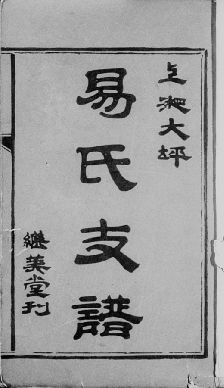 上湘大坪
易氏支譜
繼美堂刊